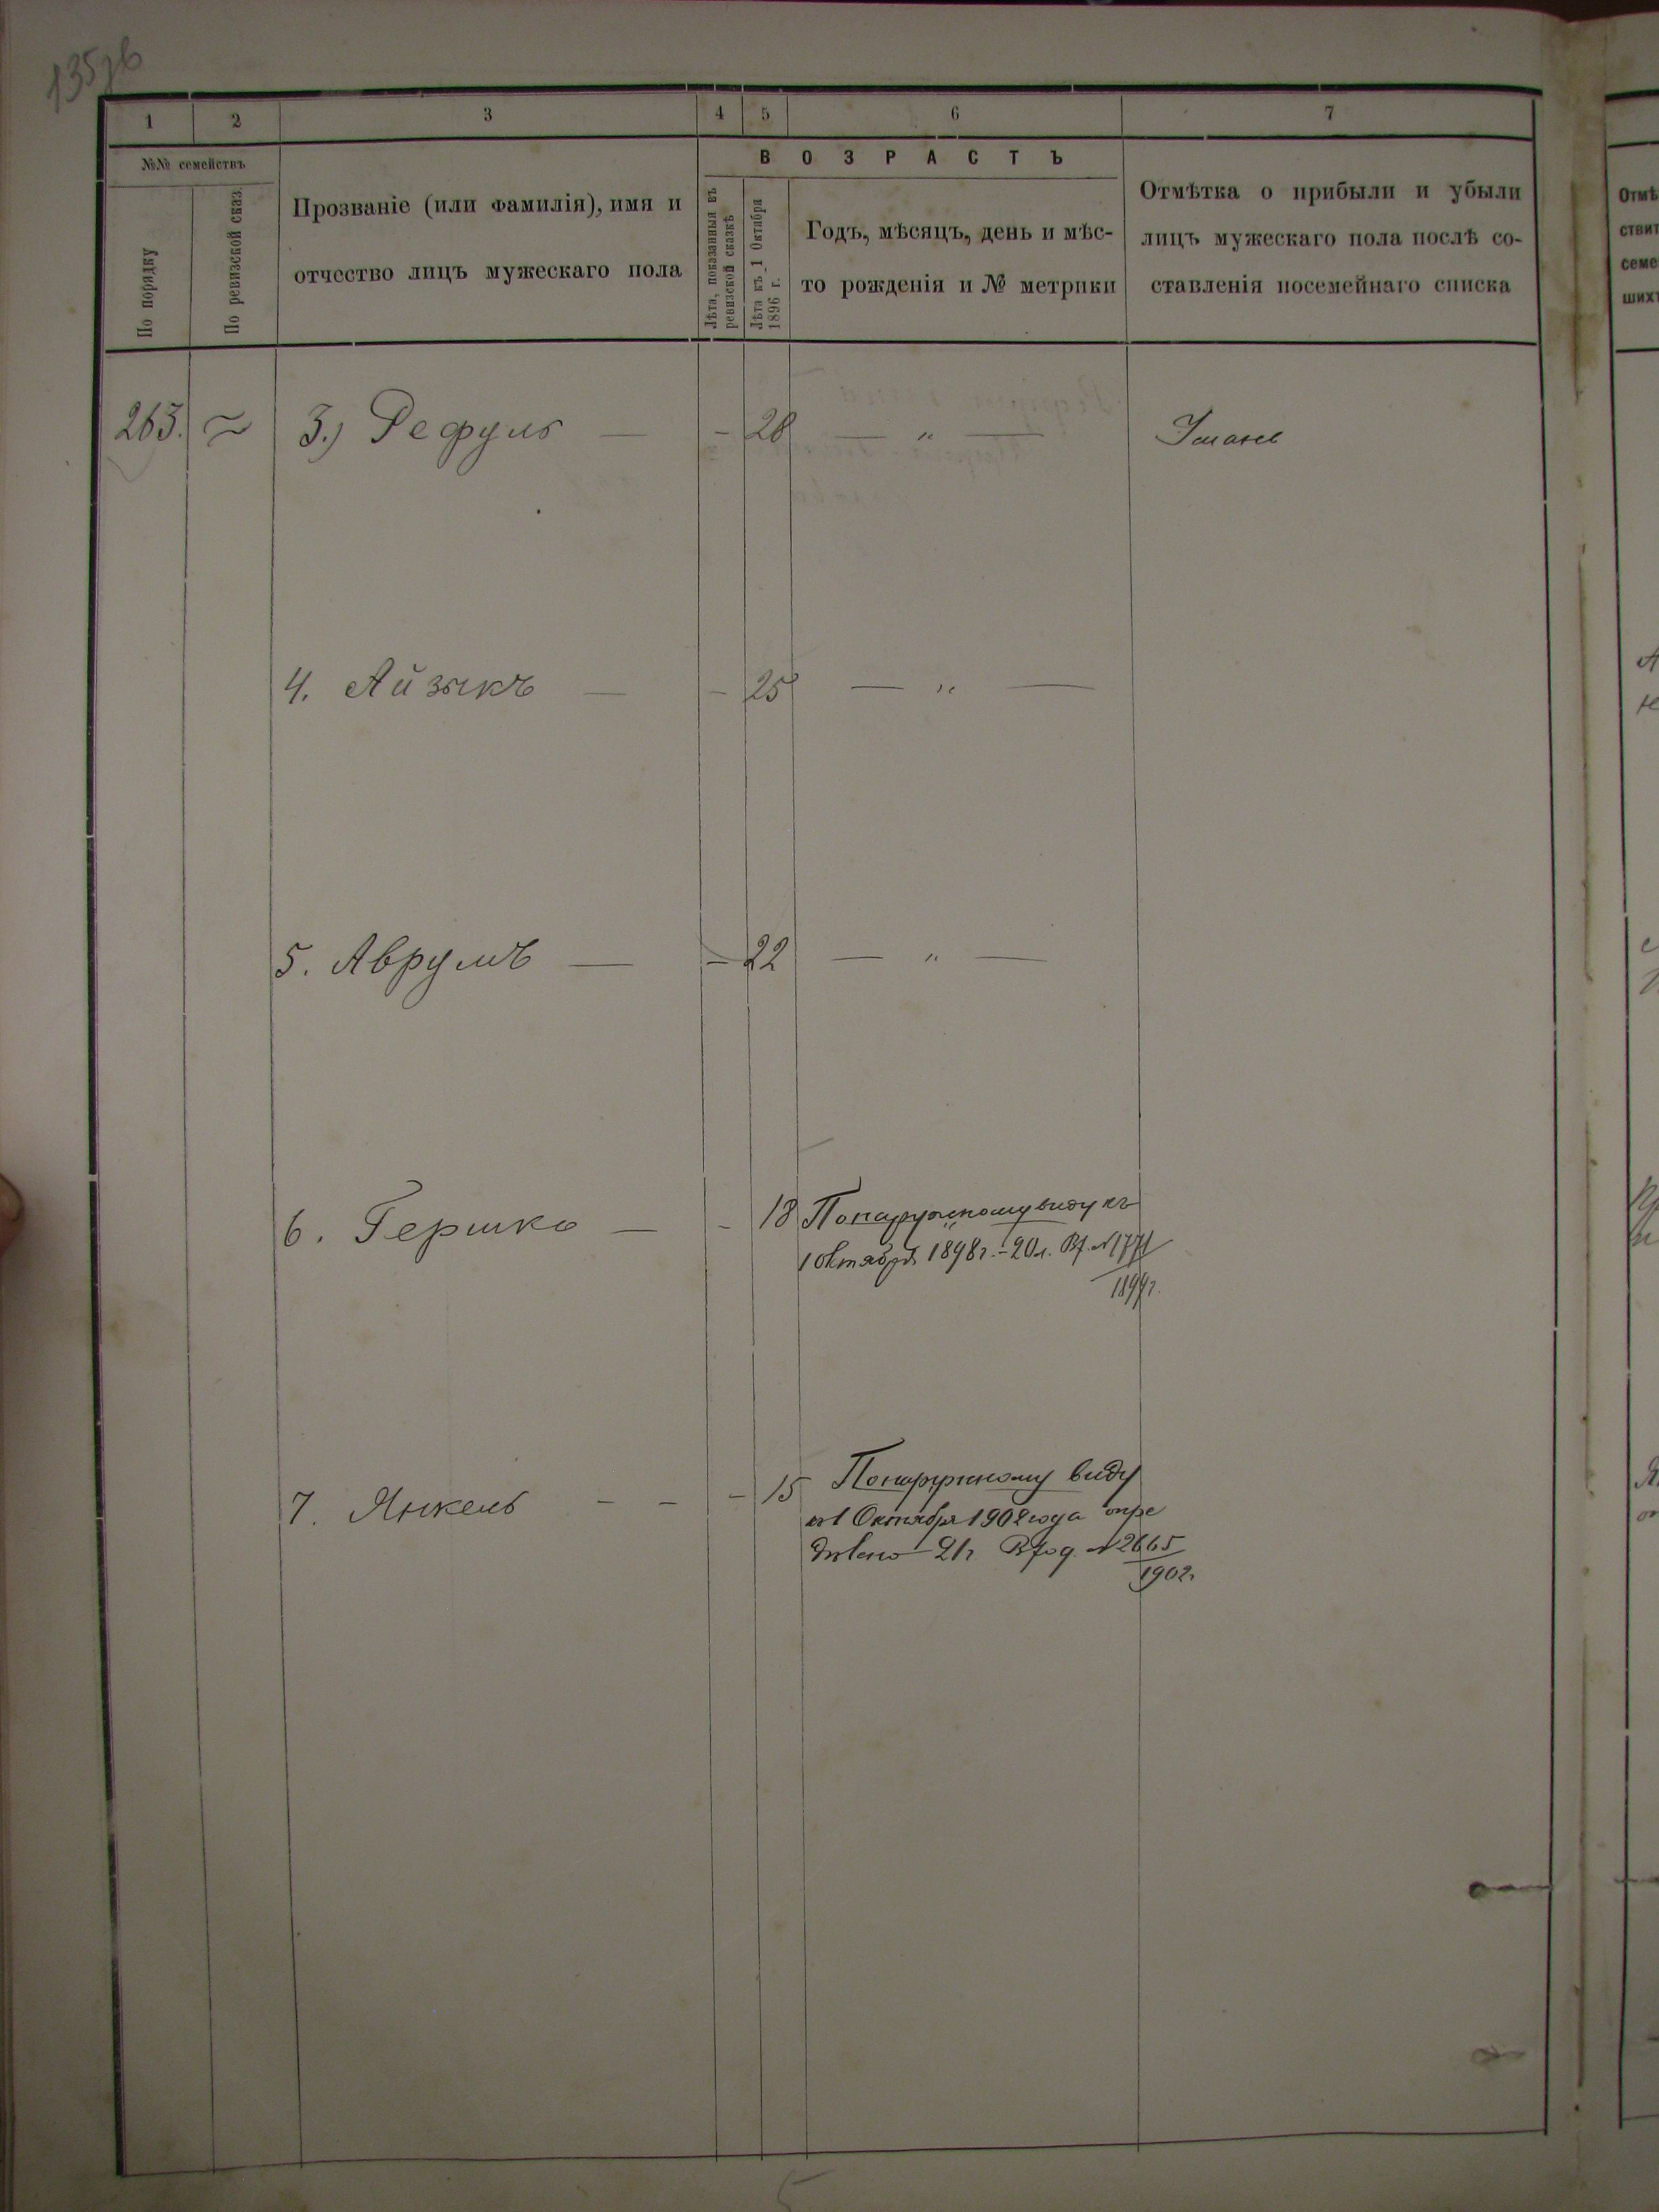 1 2 3 4 5 6 7
№№ семействъ
По порядку
По ревизской сказ.
Прозваніе (или фамилія), имя и
отчество лицъ мужескаго пола
ВОЗРАСТЪ
Лѣта, показанныя въ
ревизской сказкѣ
Лѣта къ 1 Октября
1896 г.
Годъ, мѣсяцъ, день и мѣс-
то рожденія и № метрики
Отмѣтка о прибыли и убыли
лицъ мужескаго пола послѣ со-
ставленія посемейнаго списка
263. ~ 3.) Рефуль — - 28 — " —
4. Айзыкъ — - 25 — " —
5. Аврумъ — - 22 — " —
6. Гершко — - 18 По наружному виду къ
1 октября 1898 г. - 20 л. Вх. № 1771
1899 г.
7. Янкель - - - 15 По наружному виду
къ 1 Октября 1902 года опре
дѣлено 21 г. Вход. № 2665
1902 г.
Отмѣ
ствит
семе
ших